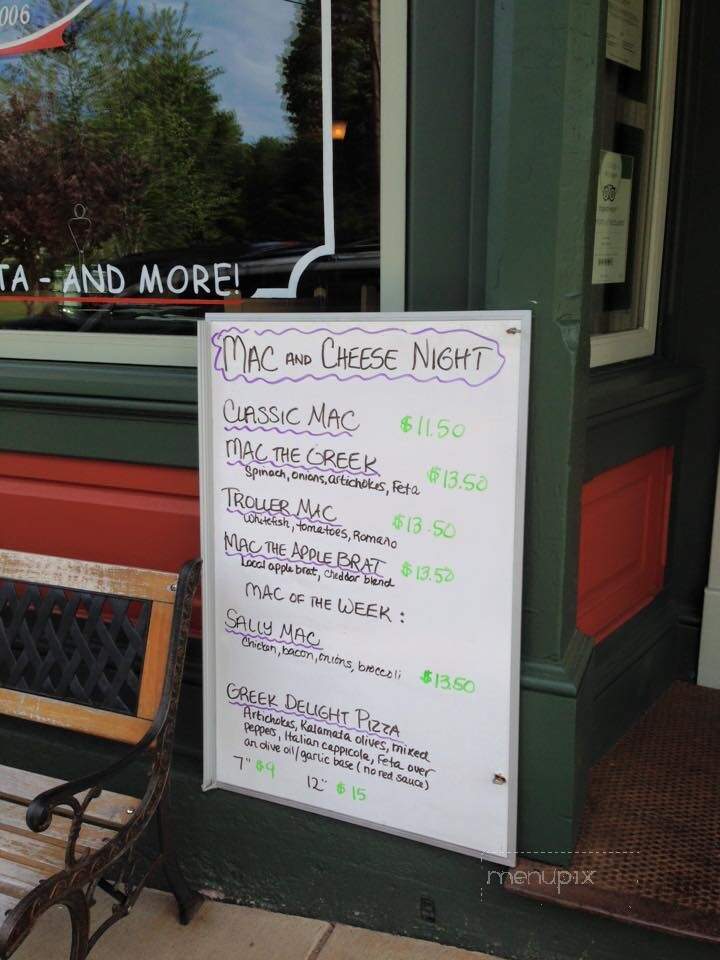 006
TA - AND MORE!
MAC AND CHEESE NIGHT
CLASSIC MAC $11.50
MAC THE GREEK
Spinach, onions, artichokes, Feta $13.50
TROLLER MAC
Whitefish, tomatoes, Romano $13.50
MAC THE APPLE BRAT
Local apple brat, cheddar blend $13.50
MAC OF THE WEEK:
SALLY MAC
Chicken, bacon, onions, broccoli $13.50
GREEK DELIGHT PIZZA
Artichokes, Kalamata olives, mixed
peppers, Italian cappicola, Feta over
an olive oil/garlic base (no red sauce)
7" $9
12" $15
menupix